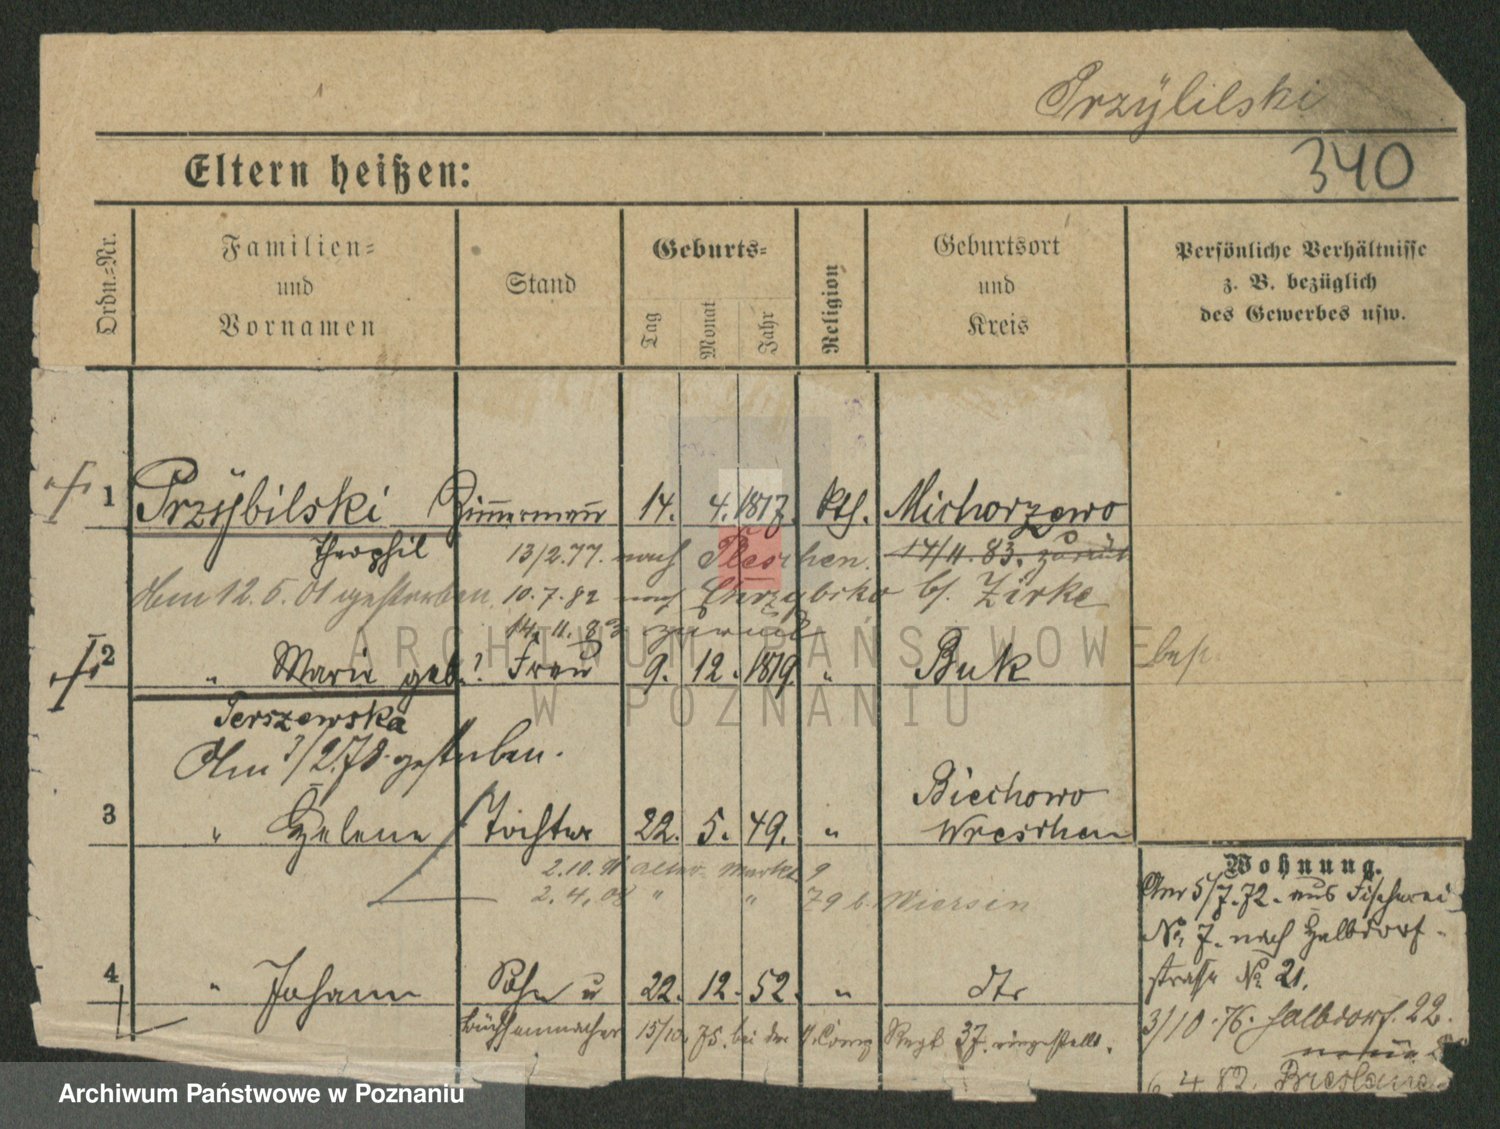 Przÿbilski
340
Eltern heißen:
Ordn.-Nr.
Familien- und Vornamen
Stand
Geburts-
Tag
Monat
Jahr
Religion
Geburtsort und Kreis
Persönliche Verhältnisse
z. B. bezüglich
des Gewerbes usw.
1 Przÿbilski Zimmermann 14. 4. 1817. kth. Michorzewo
Theophil 13/2.77. nach Pleschen. 14/11.83. zurück
Am 12.5.01 gestorben. 10.7.82 nach Chrzypsko b/ Zirke
14.11.83 zurück
ARCHIWUM PAŃSTWOWE
W POZNANIU
2 " Marie geb.? Frau 9. 12. 1819. " Buk
Terszewska
Am 3/2.78. gestorben.
Biechowo
3 " Helene Tochter 22. 5. 49. " Wreschen
2.10. Alter Markt 9
2.4.08 " " 79 b. Wiersin
4 " Johann Sohn u 22. 12. 52. " dto
Büchsenmacher 15/10. 75. bei der 11. Comp Regt 37. eingestellt.
Wohnung.
Am 5/7.72. aus Fischerei
No. 7. nach Halbdorf-
strasse No 21.
3/10.76. Halbdorf. 22.
6.4.82. Breslauer
Archiwum Państwowe w Poznaniu